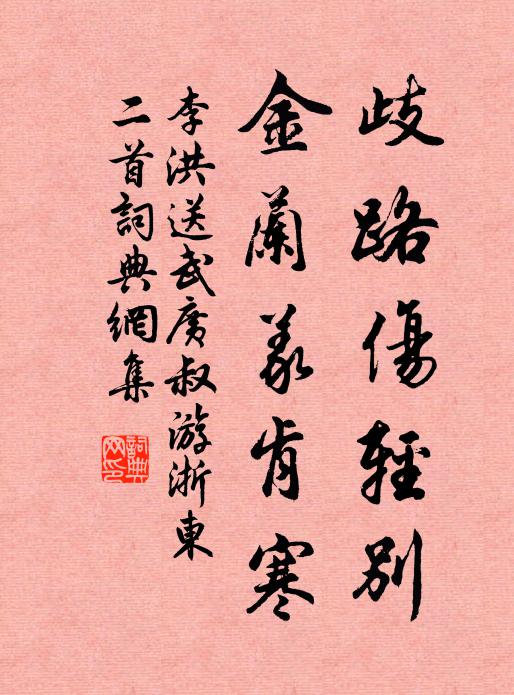 歧路傷輕別
金蘭義肯寒
李洪送武廣叔游浙東
二首詞典網集
詞典網印